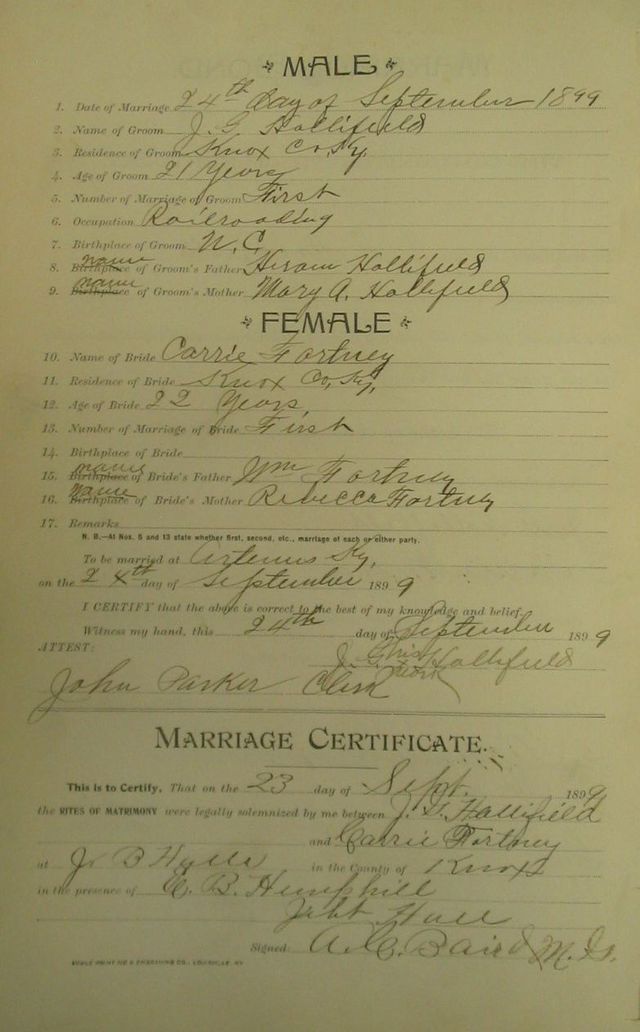 MALE
1. Date of Marriage 24th day of September 1899
2. Name of Groom J. G. Hollifield
3. Residence of Groom Knox Co, Ky.
4. Age of Groom 21 Years
5. Number of Marriage of Groom First
6. Occupation Railroading
7. Birthplace of Groom N. C.
8. Birthplace name of Groom's Father Hiram Hollifield
9. Birthplace name of Groom's Mother Mary A. Hollifield
FEMALE
10. Name of Bride Carrie Fortney
11. Residence of Bride Knox Co, Ky,
12. Age of Bride 22 Years,
13. Number of Marriage of Bride First
14. Birthplace of Bride
15. Birthplace name of Bride's Father Wm Fortney
16. Birthplace name of Bride's Mother Rebecca Fortney
17. Remarks
N. B.—At Nos. 5 and 13 state whether first, second, etc., marriage of each or either party.
To be married at Artemus Ky,
on the 24th day of September 1899
I CERTIFY that the above is correct to the best of my knowledge and belief.
Witness my hand, this 24th day of September 1899
ATTEST: J. G. his mark Hollifield
John Parker Clerk
MARRIAGE CERTIFICATE.
This is to Certify, That on the 23 day of Sept. 1899
the RITES OF MATRIMONY were legally solemnized by me between J. G. Hollifield
and Carrie Fortney
at J. B in the County of Knox
in the presence of C. B. Hemphill
Hall
Signed: A. C. Baird M. G.